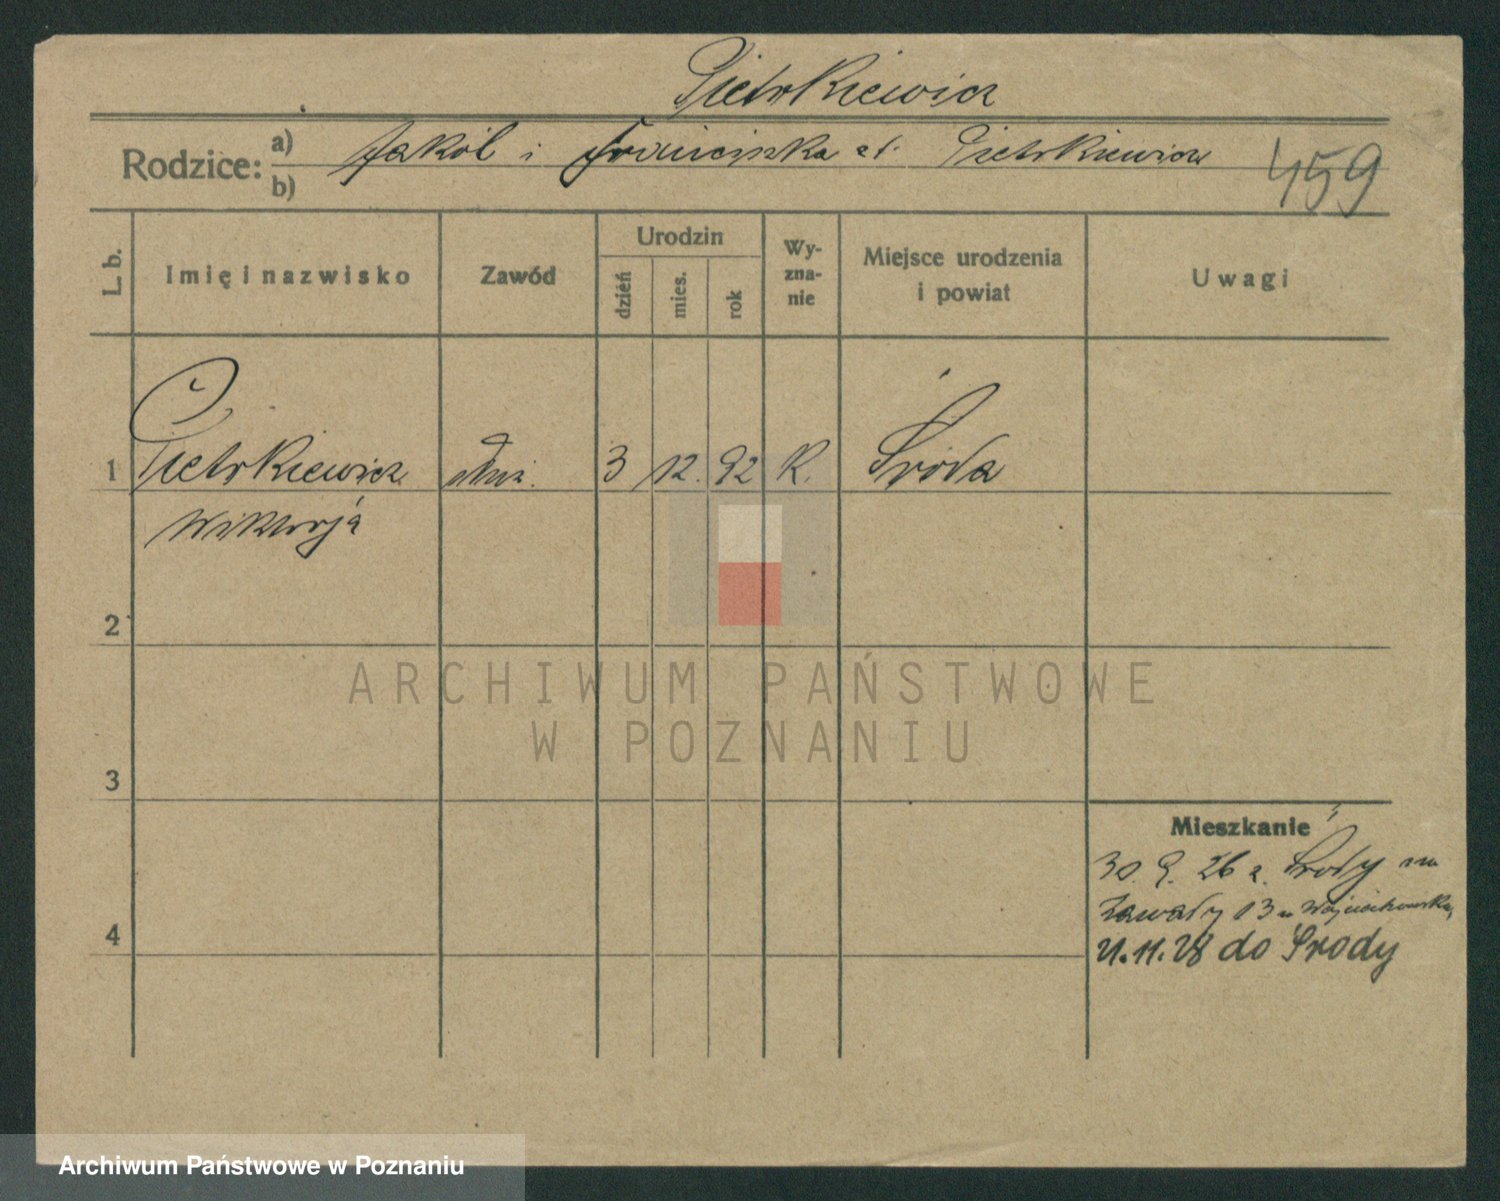 Pietrkiewicz
Rodzice: a) Jakób i Franciszka Pietrkiewicz
b)
459
L. b. Imię i nazwisko Zawód Urodzin dzień mies. rok Wyznanie Miejsce urodzenia i powiat Uwagi
1 Pietrkiewicz 3 12. 92 K. Środa
Wiktorja
2
3
4
Mieszkanie
30. 9. 26 z. Środy na
Zawady 13 u Wojciechowska
21.11.28 do Środy
ARCHIWUM PAŃSTWOWE
W POZNANIU
Archiwum Państwowe w Poznaniu